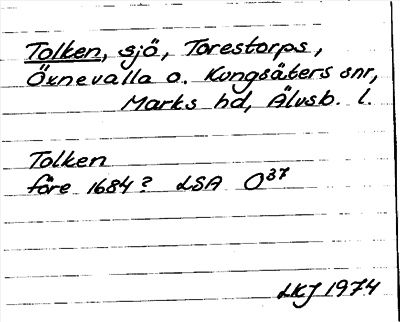 Tolken, sjö, Torestorps,
Öxnevalla o. Kungsäters snr,
Marks hd, Älvsb. l.
Tolken
före 1684? LSA O37
LKJ 1974